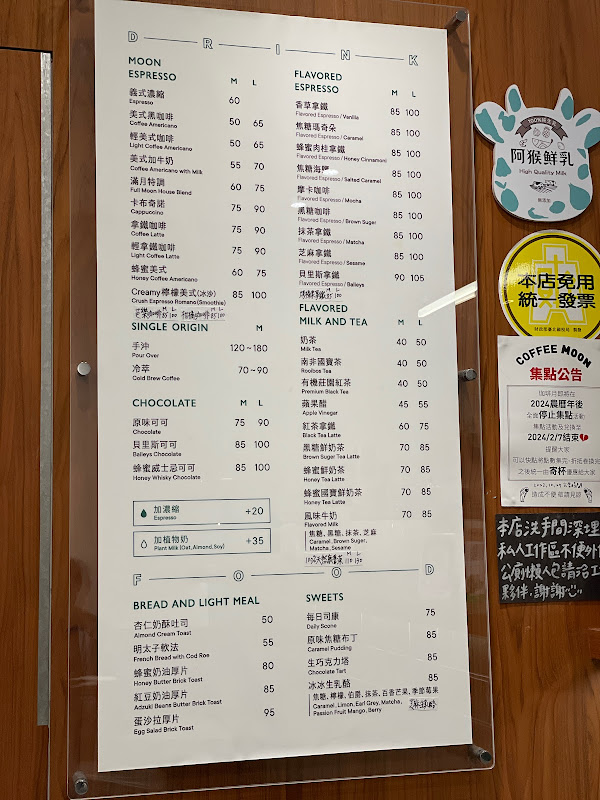 DRINK
MOON
ESPRESSO M L
義式濃縮 60
Espresso
美式黑咖啡 50 65
Coffee Americano
輕美式咖啡 50 65
Light Coffee Americano
美式加牛奶 55 70
Coffee Americano with Milk
滿月特調 60 75
Full Moon House Blend
卡布奇諾 75 90
Cappuccino
拿鐵咖啡 75 90
Coffee Latte
輕拿鐵咖啡 75 90
Light Coffee Latte
蜂蜜美式 60 75
Honey Coffee Americano
Creamy檸檬美式(冰沙) 85 100
Crush Espresso Romano (Smoothie)
SINGLE ORIGIN M
手沖 120~180
Pour Over
冷萃 70~90
Cold Brew Coffee
CHOCOLATE M L
原味可可 75 90
Chocolate
貝里斯可可 85 100
Baileys Chocolate
蜂蜜威士忌可可 85 100
Honey Whisky Chocolate
加濃縮 +20
Espresso
加植物奶 +35
Plant Milk (Oat, Almond, Soy)
FLAVORED
ESPRESSO M L
香草拿鐵 85 100
Flavored Espresso / Vanilla
焦糖瑪奇朵 85 100
Flavored Espresso / Caramel
蜂蜜肉桂拿鐵 85 100
Flavored Espresso / Honey Cinnamon
焦糖海鹽 85 100
Flavored Espresso / Salted Caramel
摩卡咖啡 85 100
Flavored Espresso / Mocha
黑糖咖啡 85 100
Flavored Espresso / Brown Sugar
抹茶拿鐵 85 100
Flavored Espresso / Matcha
芝麻拿鐵 85 100
Flavored Espresso / Sesame
貝里斯拿鐵 90 105
Flavored Espresso / Baileys
FLAVORED
MILK AND TEA M L
奶茶 40 50
Milk Tea
南非國寶茶 40 50
Rooibos Tea
有機莊園紅茶 40 50
Premium Black Tea
蘋果醋 45 55
Apple Vinegar
紅茶拿鐵 60 75
Black Tea Latte
黑糖鮮奶茶 70 85
Brown Sugar Tea Latte
蜂蜜鮮奶茶 70 85
Honey Tea Latte
蜂蜜國寶鮮奶茶 70 85
Honey Tea Latte
風味牛奶 70 85
Flavored Milk
焦糖、黑糖、抹茶、芝麻
Caramel, Brown Sugar,
Matcha, Sesame
FOOD
BREAD AND LIGHT MEAL
杏仁奶酥吐司 50
Almond Cream Toast
明太子軟法 55
French Bread with Cod Roe
蜂蜜奶油厚片 80
Honey Butter Brick Toast
紅豆奶油厚片 85
Adzuki Beans Butter Brick Toast
蛋沙拉厚片 95
Egg Salad Brick Toast
SWEETS
每日司康 75
Daily Scone
原味焦糖布丁 85
Caramel Pudding
生巧克力塔 85
Chocolate Tart
冰冰生乳酪 85
焦糖、檸檬、伯爵、抹茶、百香芒果、季節莓果
Caramel, Limon, Earl Grey, Matcha,
Passion Fruit Mango, Berry
阿猴鮮乳
High Quality Milk
本店免用
統一發票
COFFEE MOON
集點公告
2024農曆年後
全面停止集點活動
集點活動及兌換至
2024/2/7結束
提醒大家
之後統一由寄杯優惠給大家
造成不便 敬請見諒
本店洗手間深埋
私人工作區不便外
夥伴,謝謝心